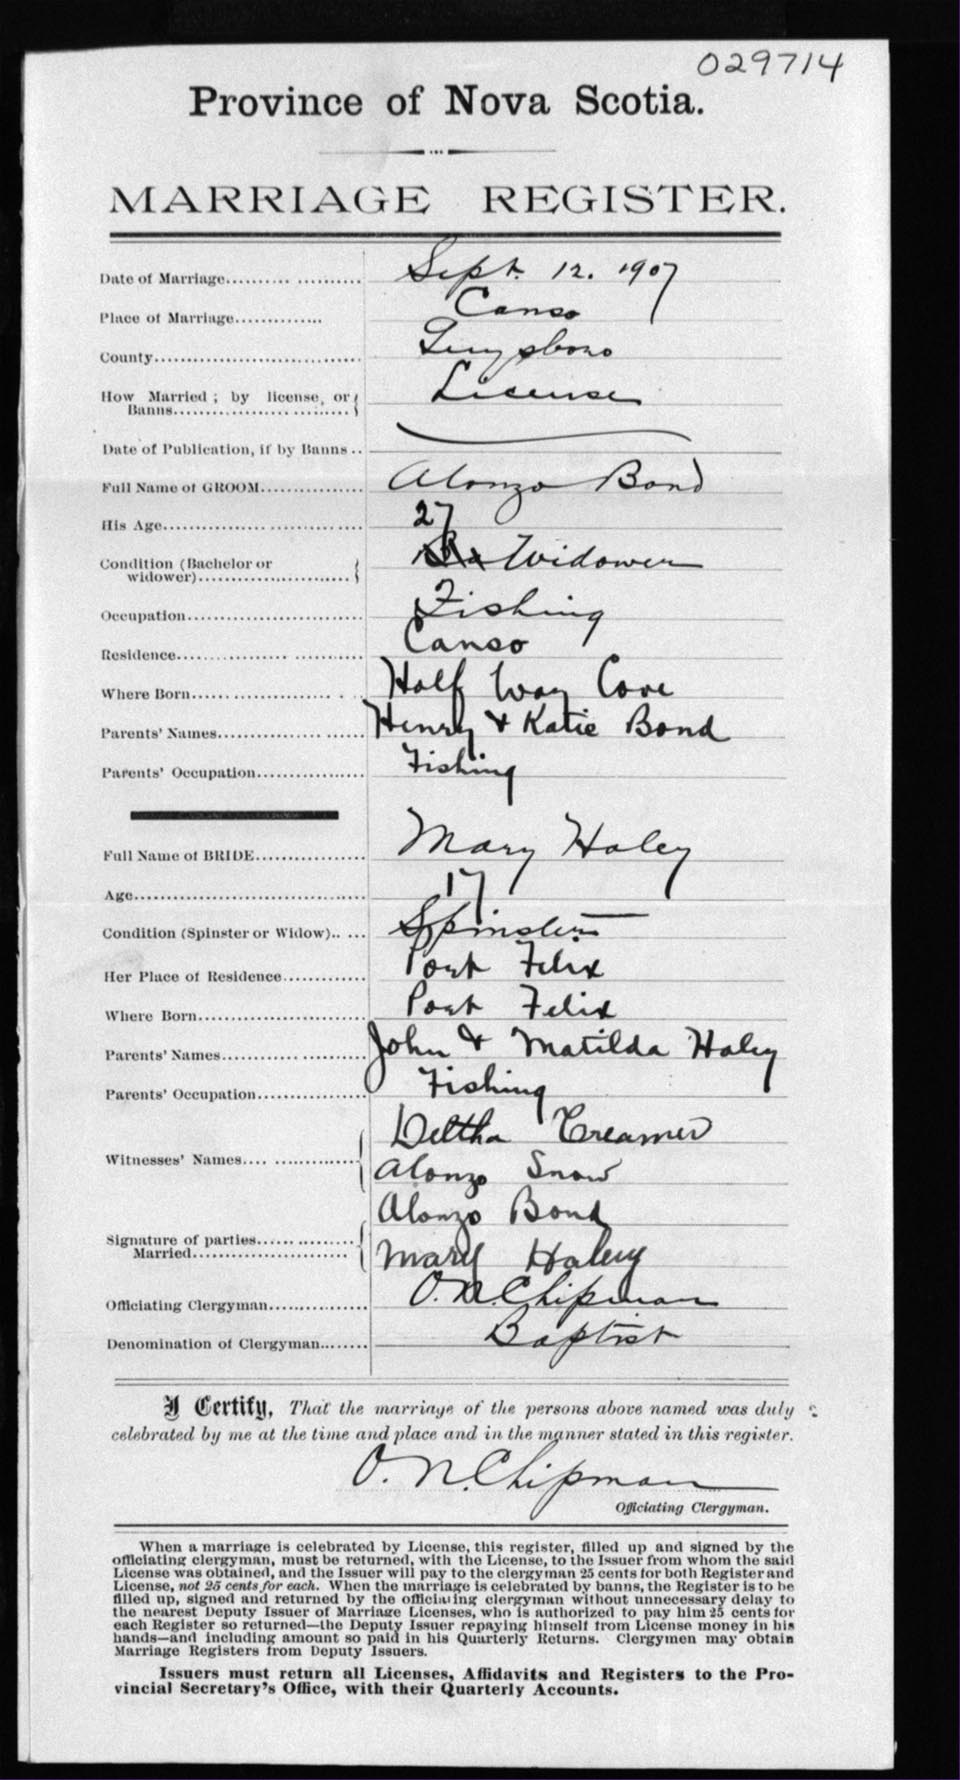 029714
Province of Nova Scotia.
MARRIAGE REGISTER.
Date of Marriage.......... .......... Sept. 12. 1907
Place of Marriage............. Canso
County............................... Guysboro
How Married ; by license, or
Banns........................... License
Date of Publication, if by Banns ..
Full Name of GROOM............... Alonzo Bond
His Age.............................. 27
Condition (Bachelor or
widower)......................... Widower
Occupation.......................... Fishing
Residence............................ Canso
Where Born.......................... Half Way Cove
Parents' Names..................... Henry & Katie Bond
Parents' Occupation................. Fishing
Full Name of BRIDE................ Mary Haley
Age................................... 17
Condition (Spinster or Widow)..... Spinster
Her Place of Residence............. Port Felix
Where Born......................... Port Felix
Parents' Names..................... John & Matilda Haley
Parents' Occupation................. Fishing
Deltha Creamer
Witnesses' Names...................
Alonzo Snow
Alonzo Bond
Signature of parties...............
Married.........................
Mary Haley
Officiating Clergyman............... O. N. Chipman
Denomination of Clergyman....... Baptist
I Certify, That the marriage of the persons above named was duly
celebrated by me at the time and place and in the manner stated in this register.
O. N. Chipman
Officiating Clergyman.
When a marriage is celebrated by License, this register, filled up and signed by the
officiating clergyman, must be returned, with the License, to the Issuer from whom the said
License was obtained, and the Issuer will pay to the clergyman 25 cents for both Register and
License, not 25 cents for each. When the marriage is celebrated by banns, the Register is to be
filled up, signed and returned by the officiating clergyman without unnecessary delay to
the nearest Deputy Issuer of Marriage Licenses, who is authorized to pay him 25 cents for
each Register so returned—the Deputy Issuer repaying himself from License money in his
hands—and including amount so paid in his Quarterly Returns. Clergymen may obtain
Marriage Registers from Deputy Issuers.
Issuers must return all Licenses, Affidavits and Registers to the Pro-
vincial Secretary's Office, with their Quarterly Accounts.